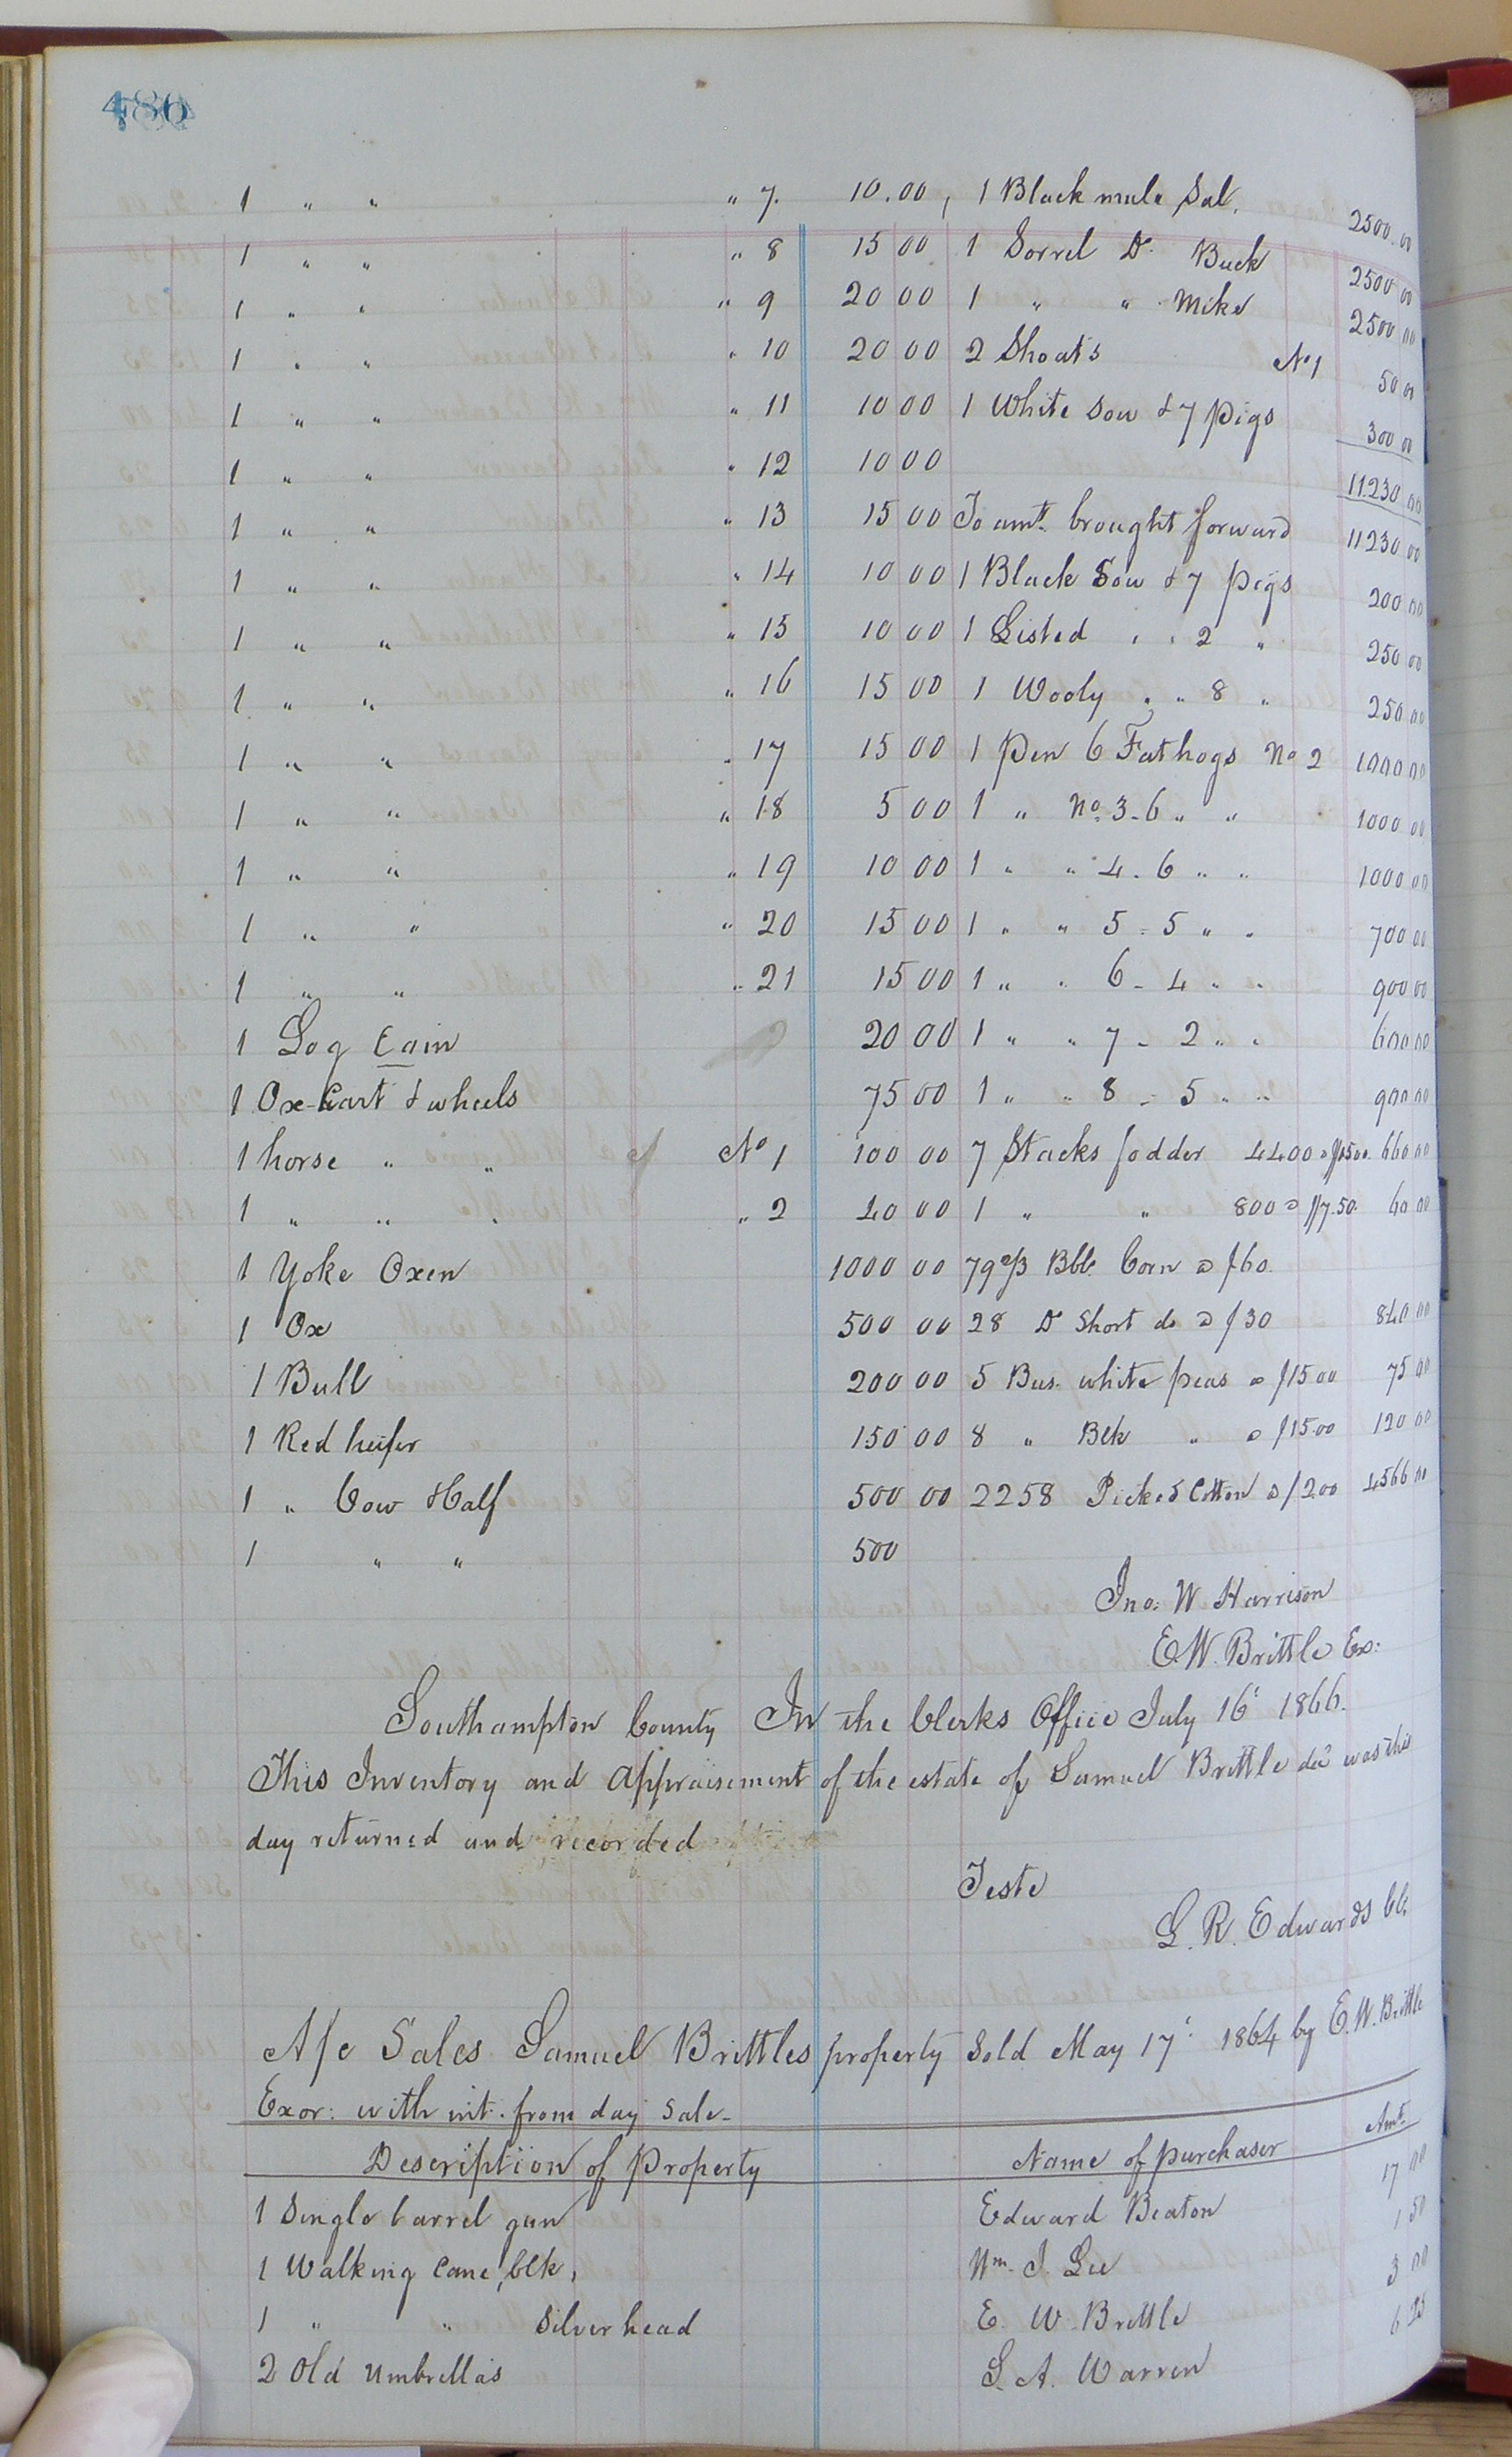 480
1 " " " 7. 10.00, 1 Black mule Sal. 2500.00
1 " " " 8 15 00 1 Sorrel Do Buck 2500 00
1 " " " 9 20 00 1 " " Mike 2500 00
1 " " " 10 20 00 2 Shoats No 1 50 00
1 " " " 11 10 00 1 White Sow & 7 pigs 300 00
1 " " " 12 10 00 11230 00
1 " " " 13 15 00 To amt. brought forward 11230 00
1 " " " 14 10 00 1 Black Sow & 7 pigs 200 00
1 " " " 15 10 00 1 Listed " " 2 " 250 00
1 " " " 16 15 00 1 Wooly " " 8 " 250 00
1 " " " 17 15 00 1 pen 6 Fathogs No 2 1000 00
1 " " " 18 5 00 1 " No. 3 - 6 " " 1000 00
1 " " " 19 10 00 1 " " 4 - 6 " " 1000 00
1 " " " 20 15 00 1 " " 5 - 5 " " 700 00
1 " " " 21 15 00 1 " " 6 - 4 " " 900 00
1 Log 20 00 1 " " 7 - 2 " " 600 00
1 Ox-Cart & wheels 75 00 1 " " 8 - 5 " " 900 00
1 horse " " No 1 100 00 7 Stacks fodder 4400 @ $1500. 660 00
1 " " " " 2 40 00 1 " " 800 @ $7.50. 60 00
1 Yoke Oxen 1000 00 79 2/3 Bbl. Corn @ $60.
1 Ox 500 00 28 Do Short do @ $30 840 00
1 Bull 200 00 5 Bus. white peas @ $15.00 75 00
1 Red heifer 150 00 8 " Blk " @ $15.00 120 00
1 " Cow &Calf 500 00 2258 Picked Cotton @ $2.00 4566 00
1 " " 500
Jno. W Harrison
E.W. Brittle Ex:
Southampton County In the Clerks Office July 16' 1866.
This Inventory and Appraisement of the estate of Samuel Brittle decd was this
day returned and recorded
Teste
L. R. Edwards Clk.
A/c Sales Samuel Brittles property Sold May 17' 1864 by E.W. Brittle
Exor: with int. from day Sale-
Description of Property Name of purchaser Amt.
1 Single barrel gun Edward Beaton 17 00
1 Walking Cane, blk, Wm. J. Lee 1 50
1 " " Silver head E. W. Brittle 3 00
2 Old Umbrellas S. A. Warren 6 25